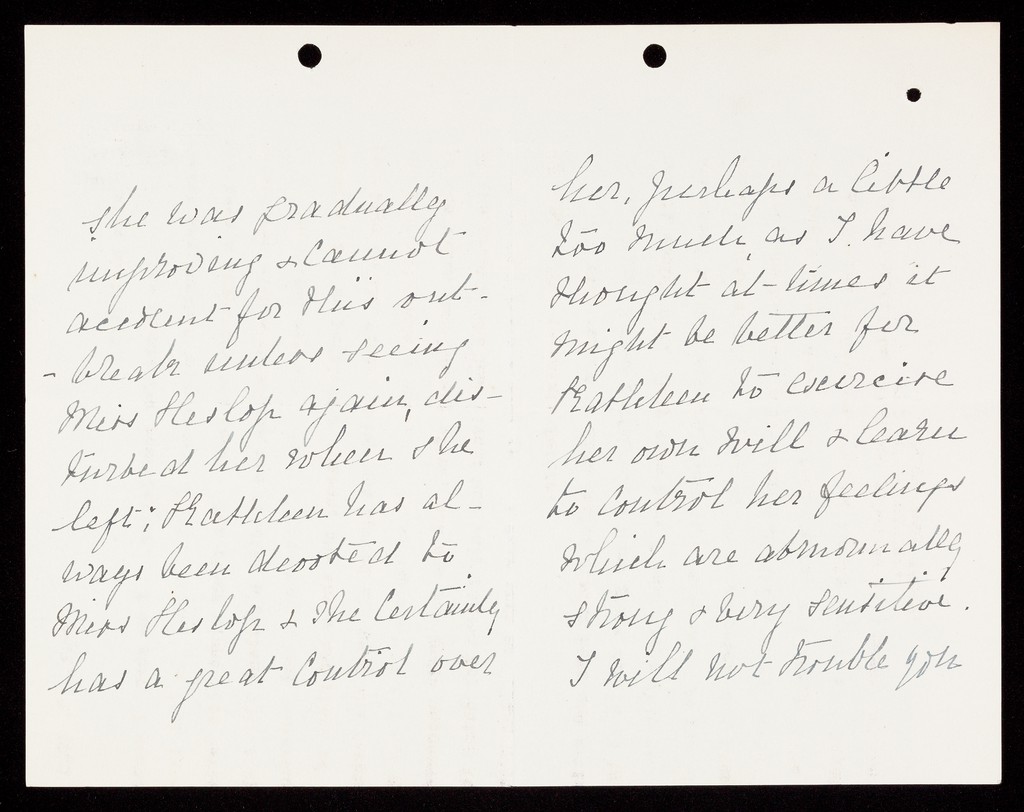 she was gradually
improving & cannot
account for this out-
- break unless seeing
Miss Heslop again, dis-
turbed her when she
left; Kathleen has al-
ways been devoted to
Miss Heslop & she certainly
has a great control over
her, perhaps a little
too much, as I have
thought at times it
might be better for
Kathleen to exercise
her own will & learn
to control her feelings
which are abnormally
strong & very sensitive.
I will not trouble you